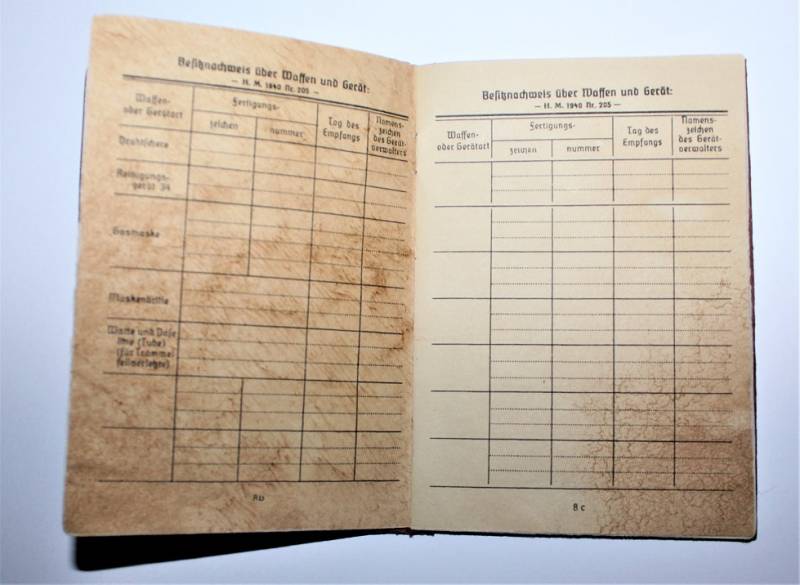 Besitznachweis über Waffen und Gerät:
— H. M. 1940 Nr. 205 —
Waffen-
oder Gerätart
Fertigungs-
zeichen
nummer
Tag des
Empfangs
Namens-
zeichen
des Gerät-
verwalters
Drahtschere
Reinigungs-
gerät 34
Gasmaske
Maskenbrille
Watte und Vase
line (Tube)
(für Trommel
fellverletzte)
Besitznachweis über Waffen und Gerät:
— H. M. 1940 Nr. 205 —
Waffen-
oder Gerätart
Fertigungs-
zeichen
nummer
Tag des
Empfangs
Namens-
zeichen
des Gerät-
verwalters
8 c